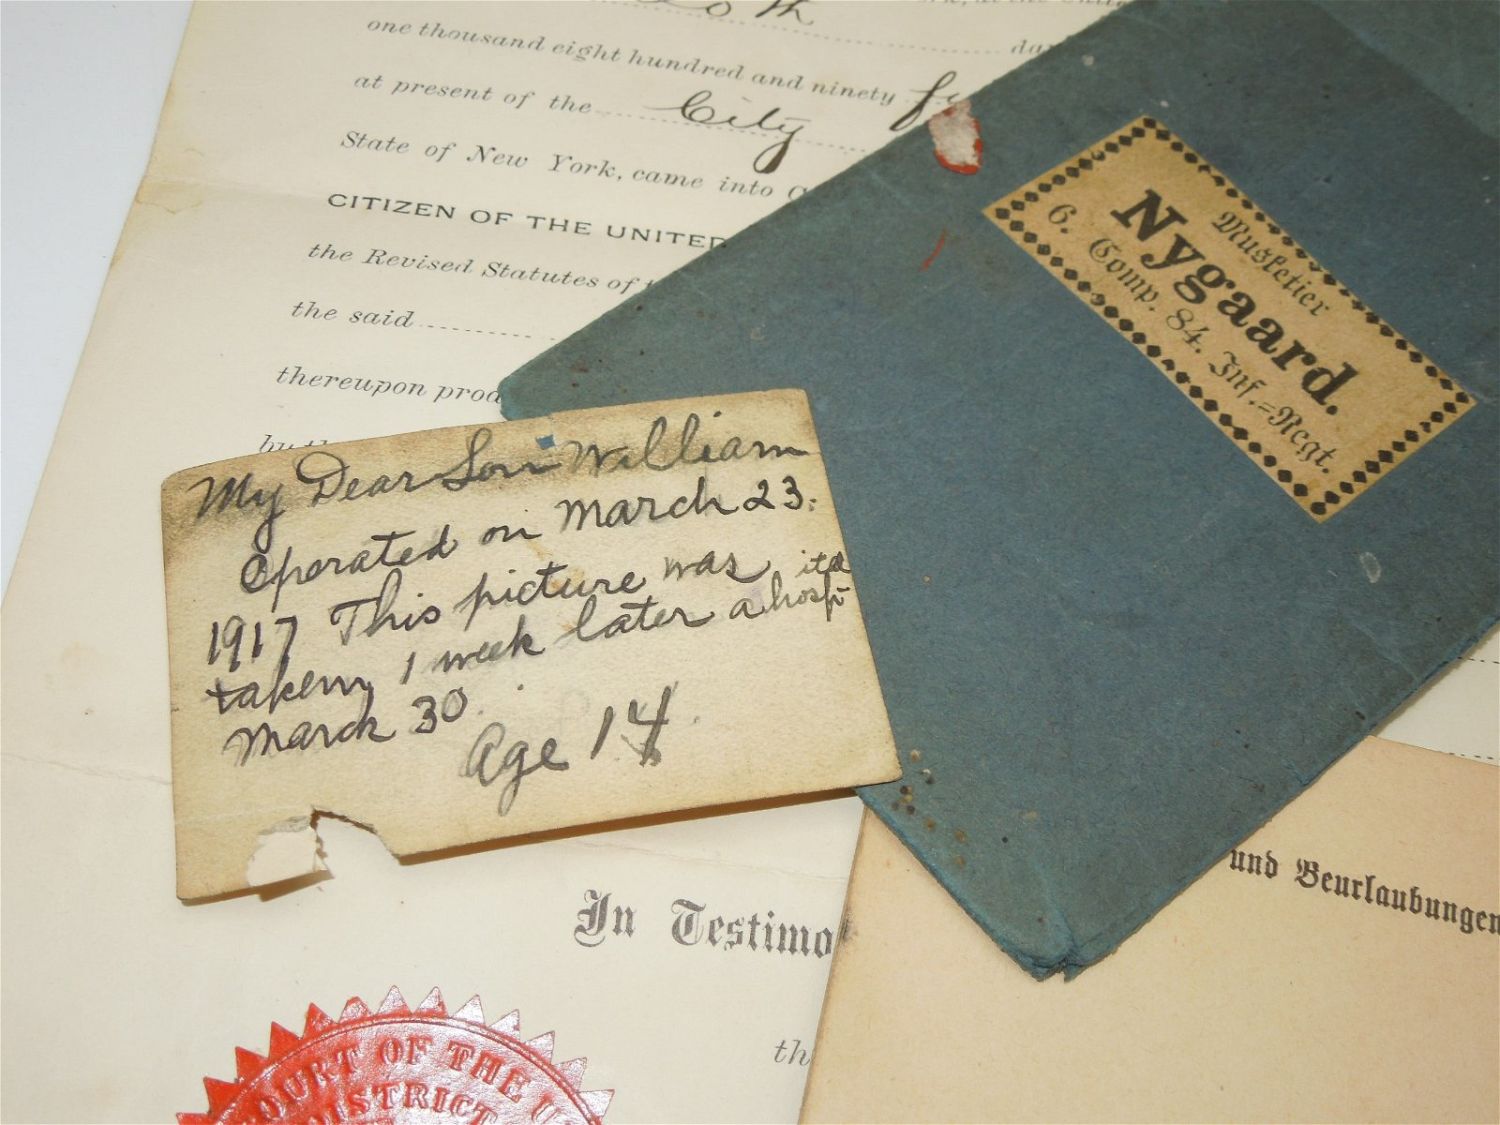 one thousand eight hundred and ninety
at present of the City
State of New York, came into
CITIZEN OF THE UNITED
the Revised Statutes of
the said
thereupon prod
by th
Musketier
Nygaard.
6. Comp. 84. Inf.=Regt.
My Dear Son William
Operated on March 23.
1917 This picture was
taken 1 week later a hospital
March 30.
Age 14
und Beurlaubungen
In Testimo
th
COURT OF THE U
DISTRICT